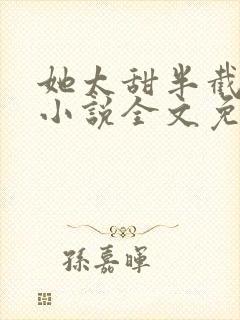 她太甜半截
小說全文免
孫嘉暉